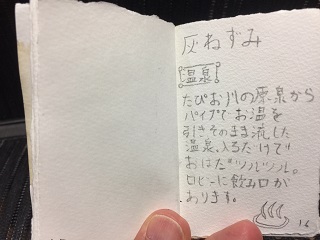 灰ねずみ
温泉
たぴお川の源泉から
パイプでお温を
引きそのまま流した
温泉、入るだけで
おはだツルツル。
ロビーに飲み口が
あります。
16